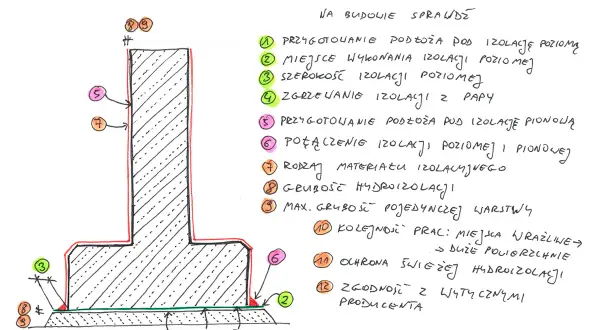 NA BUDOWIE SPRAWDŹ
8 9
1 PRZYGOTOWANIE PODŁOŻA POD IZOLACJĘ POZIOMĄ
2 MIEJSCE WYKONANIA IZOLACJI POZIOMEJ
3 SZEROKOŚĆ IZOLACJI POZIOMEJ
4 ZGRZEWANIE IZOLACJI Z PAPY
5
5 PRZYGOTOWANIE PODŁOŻA POD IZOLACJĘ PIONOWĄ
7
6 POŁĄCZENIE IZOLACJI POZIOMEJ I PIONOWEJ
7 RODZAJ MATERIAŁU IZOLACYJNEGO
8 GRUBOŚĆ HYDROIZOLACJI
9 MAX. GRUBOŚĆ POJEDYNCZEJ WARSTWY
10 KOLEJNOŚĆ PRAC: MIEJSCA WRAŻLIWE →
→ DUŻE POWIERZCHNIE
3
6
11 OCHRONA ŚWIEŻEJ HYDROIZOLACJI
12 ZGODNOŚĆ Z WYTYCZNYMI
PRODUCENTA
2
8
9